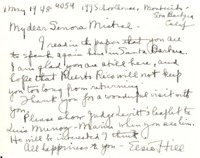 May 19 '48 4054 197 School House, Montecito -
Santa Barbara
Calif
My dear Senora Mistral -
I read in the paper that you are
to speak here in Santa Barbara.
I am glad you are still here, and
hope that Puerto Rico will not keep
you too long from returning.
Thank you for a wonderful visit with
you.
Please show Judge Levitt's leaflet to
Luis Munoz-Marin when you see him.
He will be interested I think.
All happiness to you - Elsie Hill